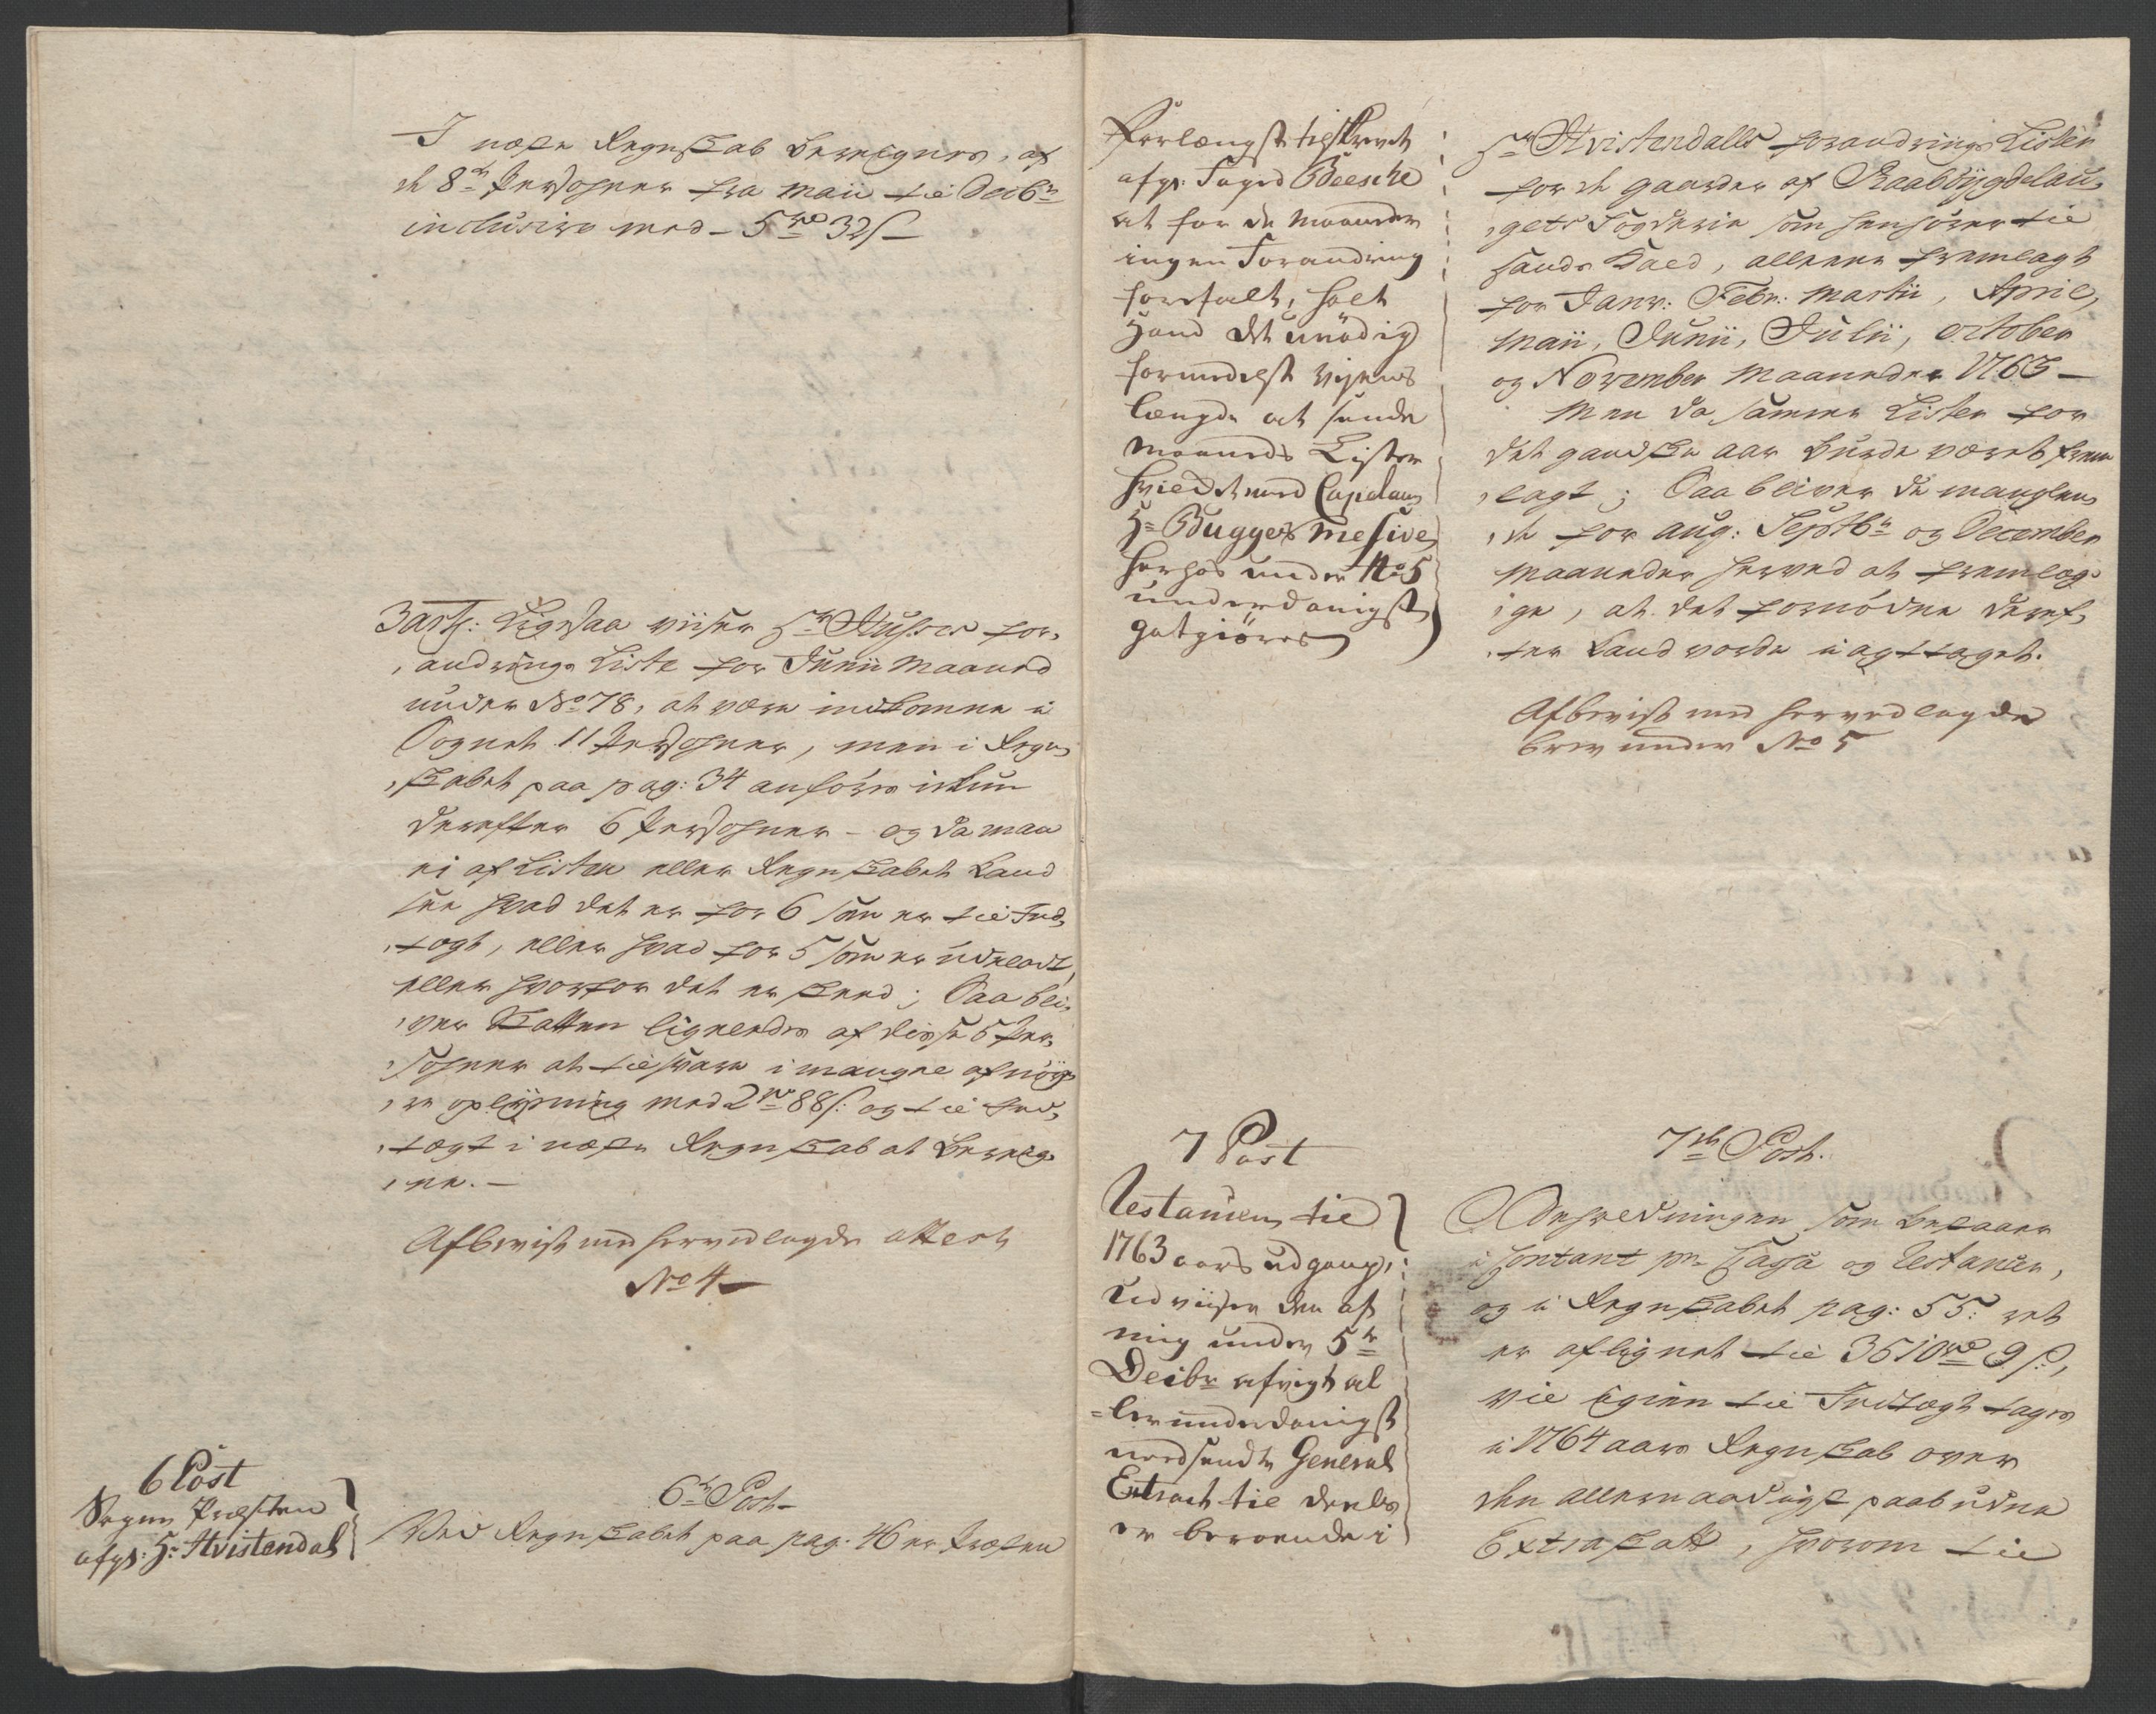 I næste Regnskab beregnes, af
de 8te Persohner fra Maii til Decbr
inclusive med - 5 rd 32 s -
3die: Ligesaa viiser Hr
andrings Liste for Junii Maaned
under No 78, at være indkomne i
Sognet 11 Persohner, men i Regn,
,skabet paa pag: 34 anføres ickun
derefter 6 Persohner - og da man
ei af Listen eller Regnskabet kand
see hvad det er for 6 som er til Ind,
,tægt, eller hvad for 5 som er udeladt,
eller hvorfor det er skeed; Saa bli,
,ver Skatten ligeledes af disse 5 Per,
,sohner at tilsvare i mangel af nøy,
,re oplysning med 2 rd 88 s: og til Ind,
,tægt i næste Regnskab at bereg,
,ne. -
Afbevist med hervedlagde attest
No 4 -
6 Post
Sogne Præsten
afgl: Hr Hvistendal
6te Post -
Ved Regnskabet paa pag: 46 er Præsten
Forlængst tilskrevet
afgl: Foged Beesche
at for de Maaneder
ingen Forandring
forefalt, holt
Hand det unødig
formedelst veyens
længde at sende
Maaneds Lister
hvilcket med Capelan
Hr Bugges Messive
herhos under No 5
underdanigst
gotgiøres
Hr Hvistendalls forandrings Lister
for de gaarder af Raabÿgdelau,
,gets Fogderie som henhører til
Sands Kald, allene fremlagt
for Janv: Febr: Martii, April,
Maii, Junii, Julii, October
og November Maaneder 1763 -
Men da samme Lister for
det gandske aar burde været frem
,lagt; Saa bliver de manglen,
,de for Aug: Septbr og December
Maaneder herved at fremlæg,
,ge, at det fornødne deref,
,ter kand vorde iagttaget.
Afbevist med hervedlagde
brev under No 5
7 Post
Restancen til
1763 aars udgang,
udviiser den af
mig under 5te
Decbr afvigt al
=lerunderdanigst
nedsendte General
Extract til deels
er beroende i
7de Post.
Beholdningen som bestaaer
i Contant pr Cassa og Restancer,
og i Regnskabet pag: 55: ret
er aflignet til 3510 rd 9 s:,
vil igien til Indtægt tages
i 1764 aars Regnskab over
den allernaadigst paabudne
Extraskatt, hvorom til